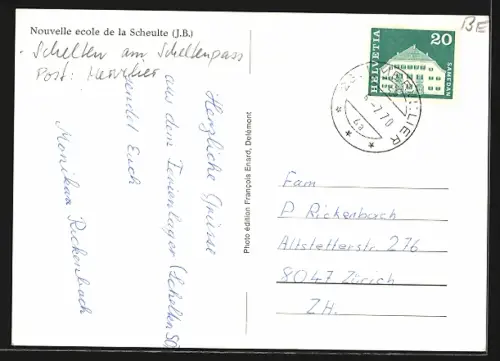 Nouvelle ecole de la Scheulte (J.B.)
Schelten am Scheltenpass
Post: Mervelier
Herzliche Grüsse
aus dem Ferienlager (Schelten SO)
sendet Euch
Monika Rickenbach
Photo édition François Enard, Delémont
BE
HELVETIA
20
SAMEDAN
MERVELIER
-7.70
Fam
P Rickenbach
Altstetterstr. 276
8047 Zürich
ZH.